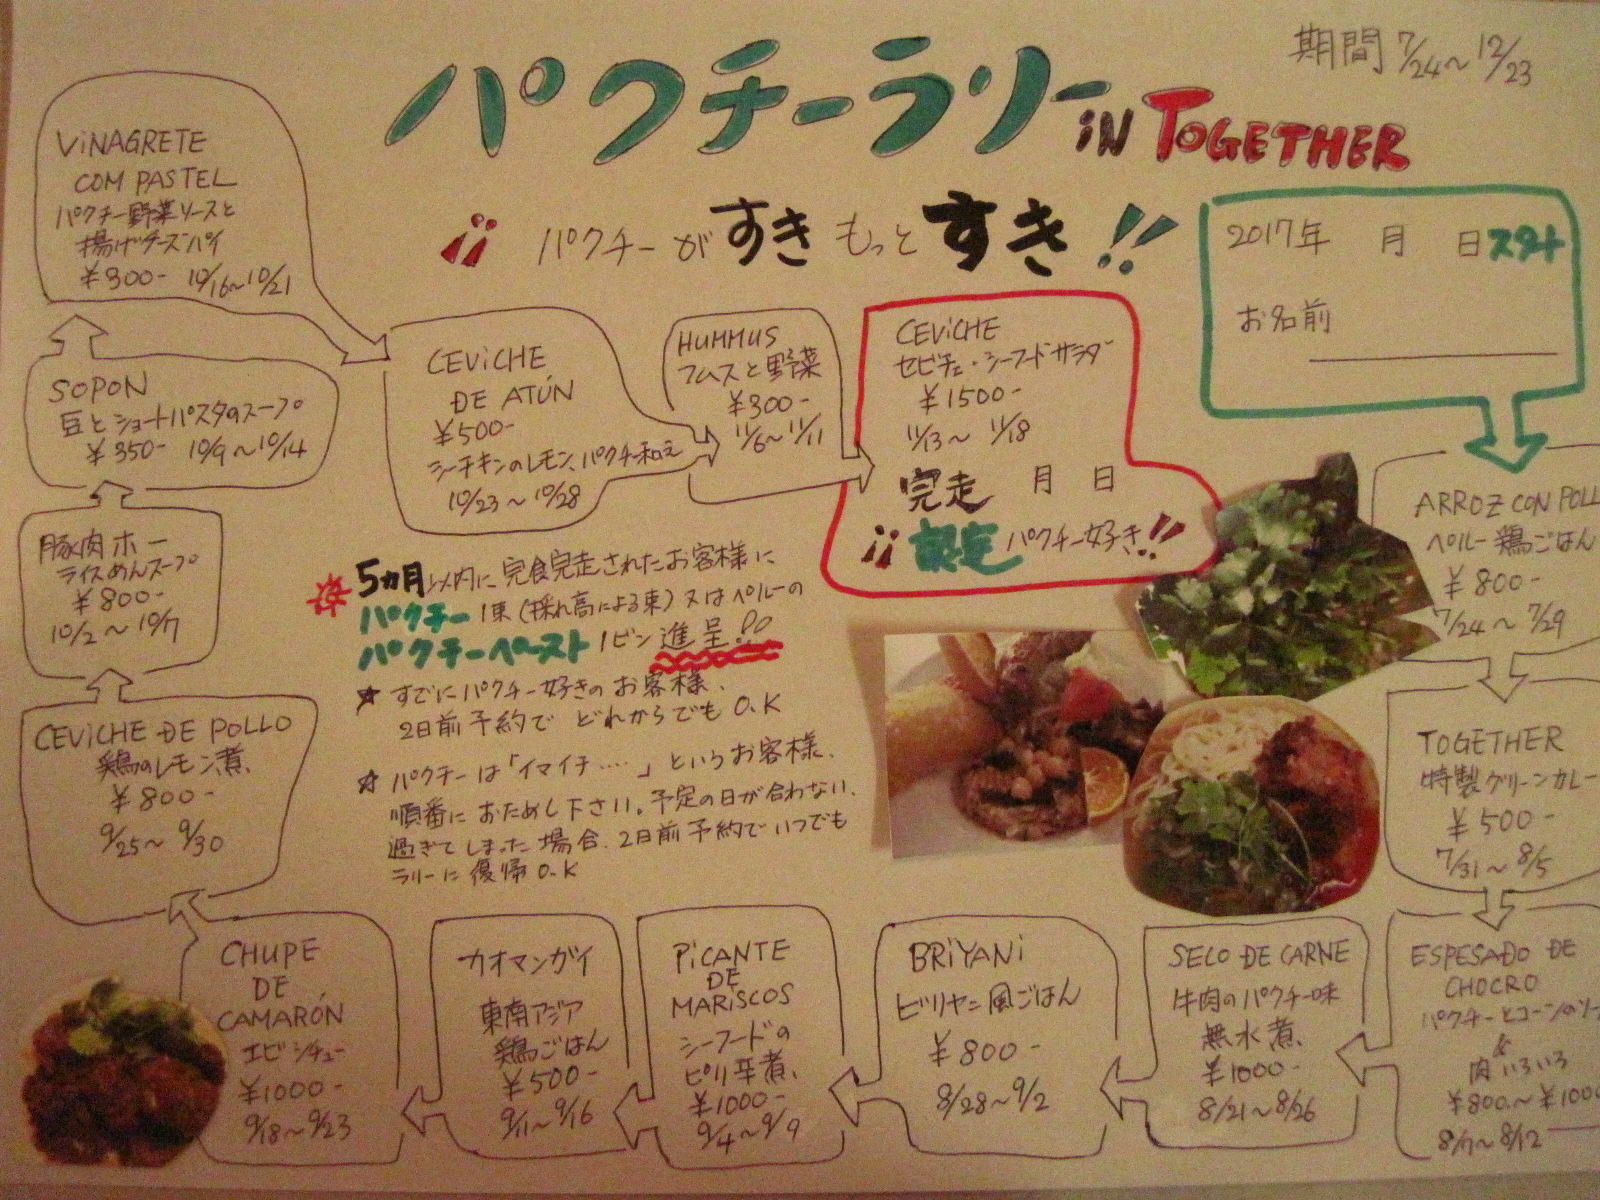 期間 7/24〜12/23
パクチーラリー IN TOGETHER
¡¡ パクチーが すき もっと すき!!
2017年 月 日 スタート
お名前
ARROZ CON POLL
ペルー鶏ごはん
¥800-
7/24〜7/29
TOGETHER
特製グリーンカレー
¥500-
7/31〜8/5
ESPESADO DE
CHOCRO
パクチーとコーンのソー
&
肉いろいろ
¥800〜¥1000
8/7〜8/12
SECO DE CARNE
牛肉のパクチー味
無水煮
¥1000-
8/21〜8/26
BRiYANi
ビリヤニ風ごはん
¥800-
8/28〜9/2
PiCANTE
DE
MARiSCOS
シーフードの
ピリ辛煮
¥1000-
9/4〜9/9
カオマンガイ
東南アジア
鶏ごはん
¥500-
9/11〜9/16
CHUPE
DE
CAMARÓN
エビシチュー
¥1000-
9/18〜9/23
CEViCHE DE POLLO
鶏のレモン煮
¥800-
9/25〜9/30
豚肉ホー
ライスめんスープ
¥800-
10/2〜10/7
SOPON
豆とショートパスタのスープ
¥350- 10/9〜10/14
ViNAGRETE
COM PASTEL
パクチー野菜ソースと
揚げチーズパイ
¥300- 10/16〜10/21
CEViCHE
DE ATÚN
¥500-
シーチキンのレモン、パクチー和え
10/23〜10/28
HUMMUS
フムスと野菜
¥300-
11/6〜11/11
CEViCHE
セビチェ・シーフードサラダ
¥1500-
11/13〜11/18
完走 月 日
¡¡ 認定 パクチー好き!!
5カ月以内に完食完走されたお客様に
パクチー1束(採れ高による束)又はペルーの
パクチーペースト1ビン進呈!!
☆ すでにパクチー好きのお客様、
2日前予約で どれからでもO.K
☆ パクチーは「イマイチ‥‥」というお客様、
順番に おためし下さい。予定の日が合わない、
過ぎてしまった場合、2日前予約でいつでも
ラリーに復帰O.K